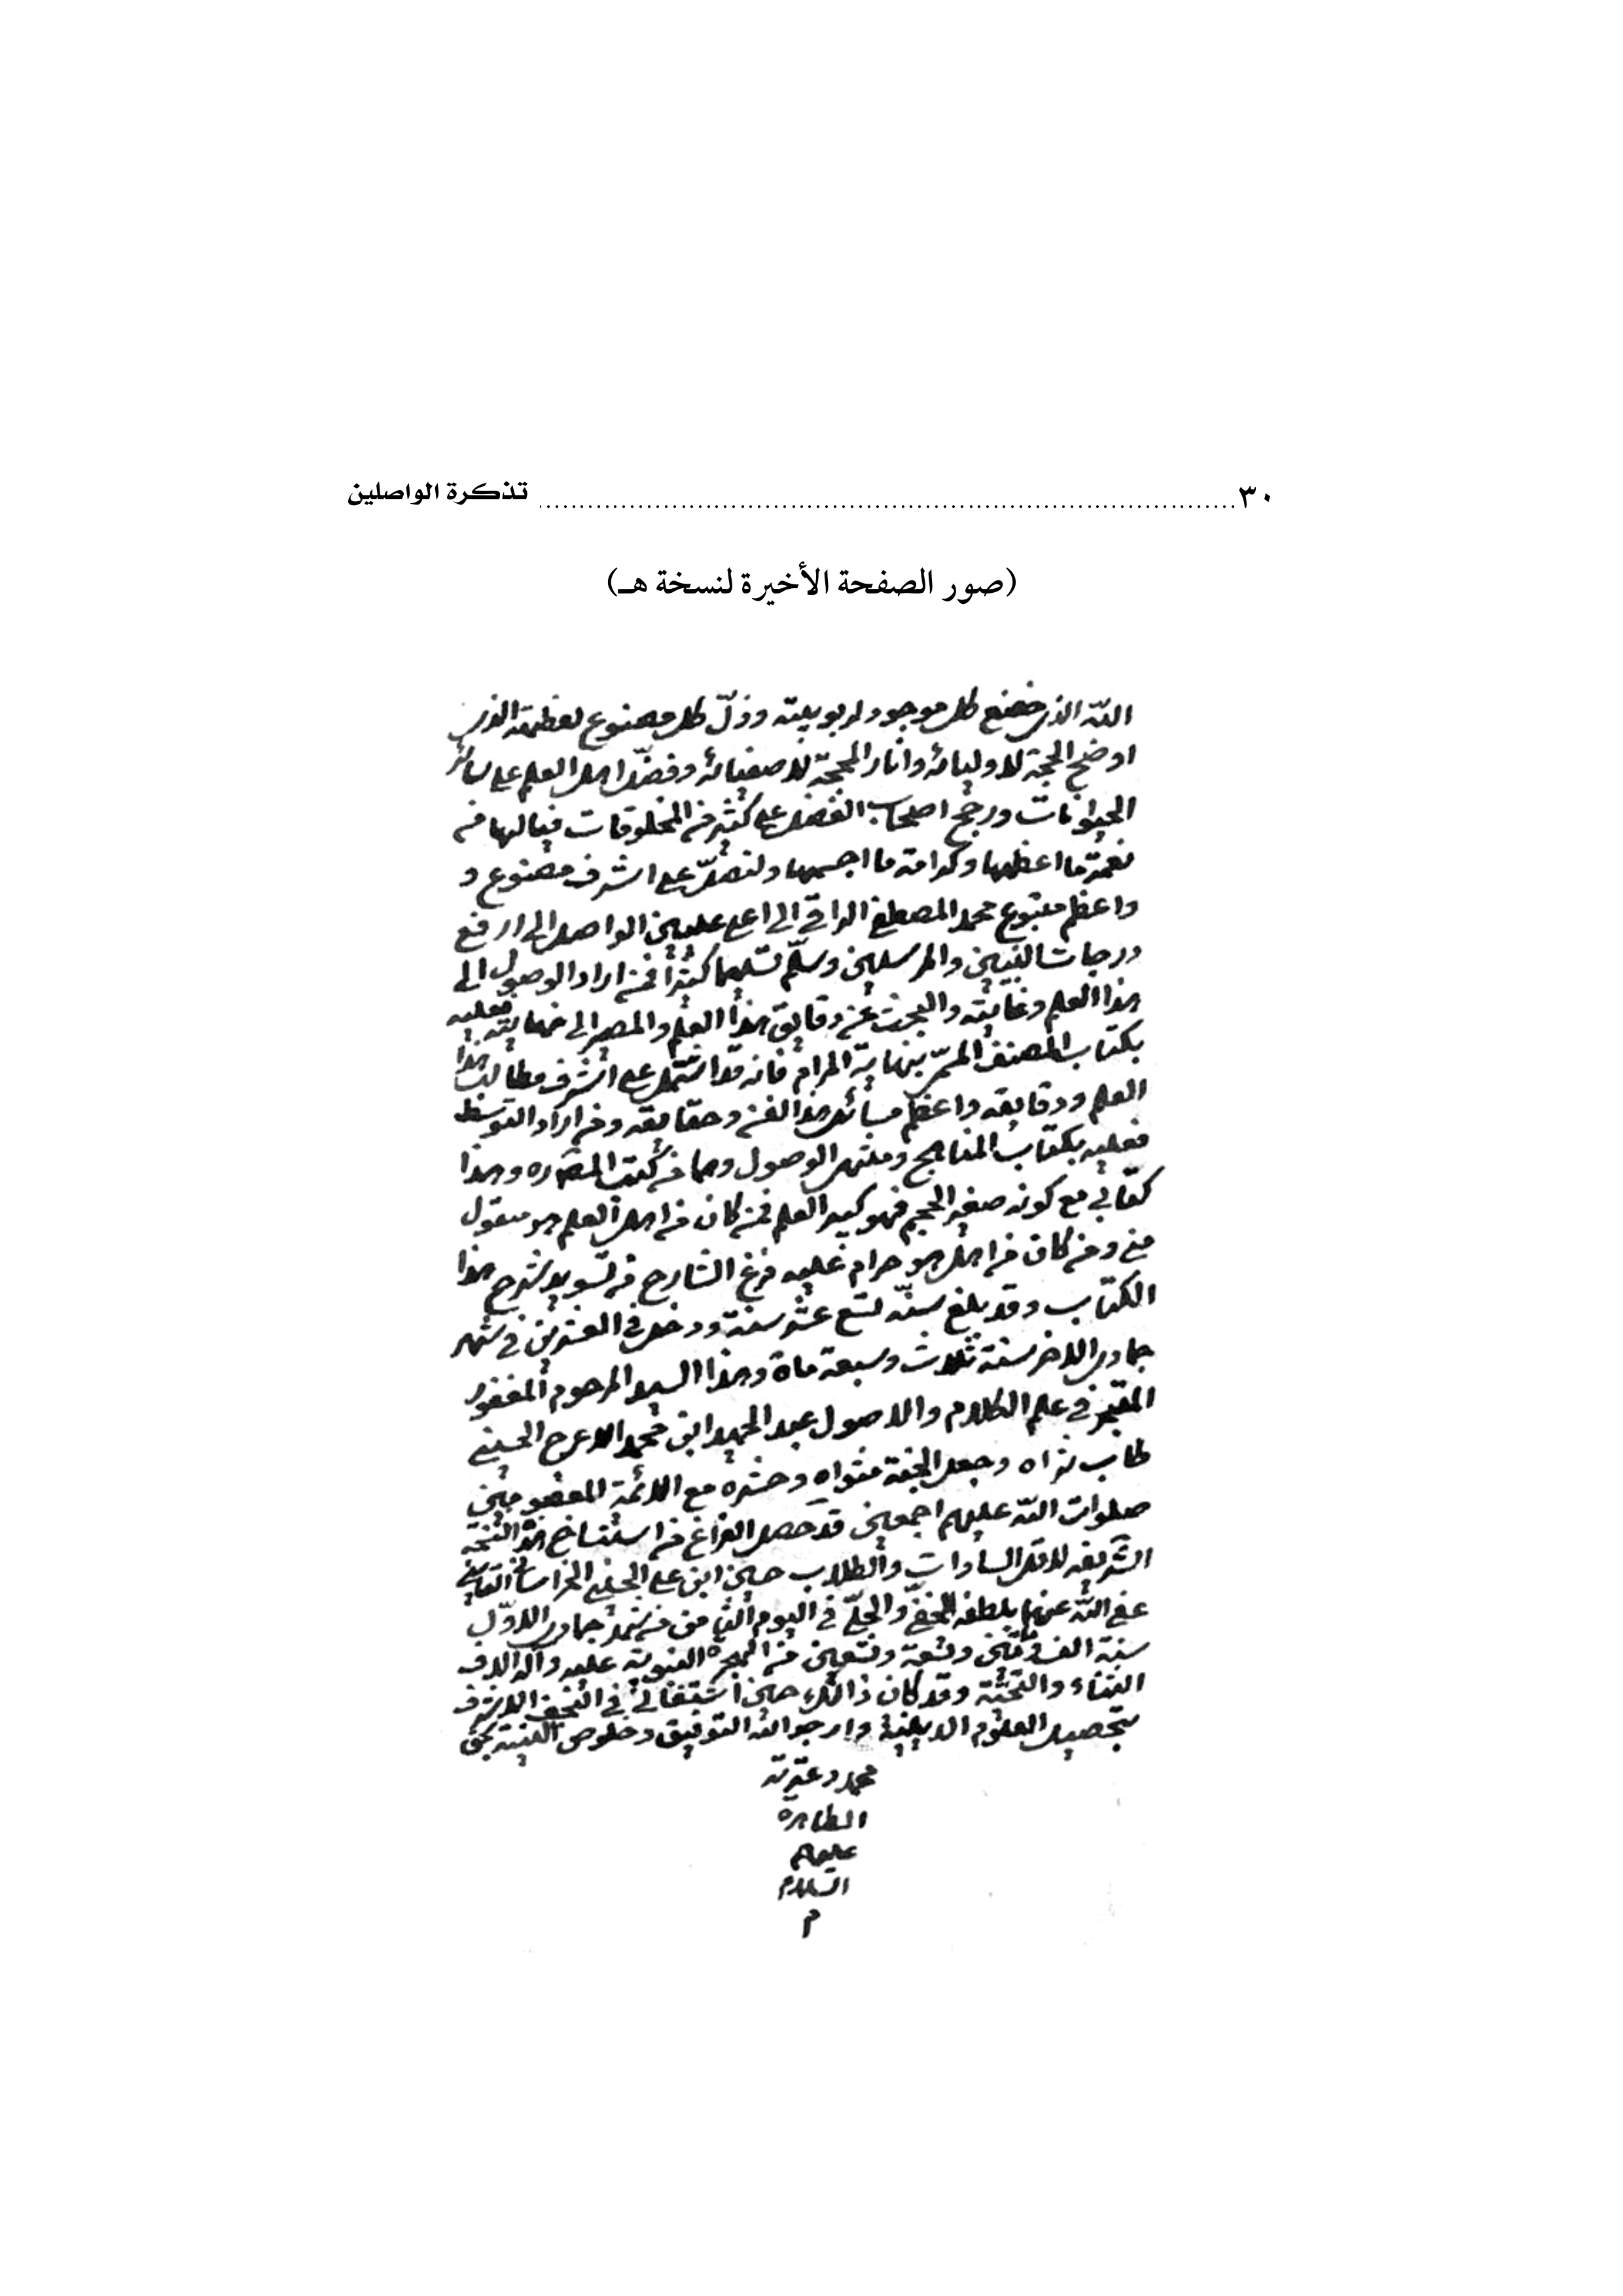 ٣٠ ........ تذكرة الواصلين
(صور الصفحة الأخيرة لنسخة هـ)
اللّه الذى خضع كل موجود لربوبيته وذلّ كل مصنوع لعظمته الذى
اوضح الحجة لاوليائه وانار المحجة لاصفيائه وفضّل اهل العلم على سائر
الحيوانات ورجح اصحاب الفضل على كثير من المخلوقات فيالها من
نعمة ما اعظمها وكرامة ما اجسمها ولنصلّ على اشرف مصنوع و
واعظم متبوع محمد المصطفى الراقى الى اعلى عليين الواصل الى ارفع
درجات النبيين والمرسلين وسلّم تسليما كثيرا فمن اراد الوصول الى
هذا العلم وغايته والبحث عن دقايق هذا العلم والمصير الى نهايته فعليه
بكتاب المصنف المسمّى بنهاية المرام فانه قد اشتمل على اشرف مطالب هذا
العلم ودقايقه واعظم مسائل هذا الفن وحقايقه ومن اراد التوسط
فعليه بكتاب المناهج ومنتهى الوصول وهما من كتب المشهوره وهذا
كتابى مع كونه صغير الحجم فهو كبير العلم فمن كان من اهل العلم هو منقول
منى ومن كان من اهل هو حرام عليه فرغ الشارح من تسويد شرح هذا
الكتاب وقد بلغ سنّه تسع عشر سنة ودخل فى العشرين فى شهر
جمادى الاخر سنة ثلاث وسبعة ماة وهذا السيد المرحوم المغفور
المتبحر فى علم الكلام والاصول عبد الحميد ابن محمد الاعرج الحسينى
طاب ثراه وجعل الجنة مثواه وحشره مع الائمة المعصومين
صلوات اللّه عليهم اجمعين قد حصل الفراغ من استنساخ هذه النسخة
الشريفه لاقل السادات والطلاب حسين ابن على الحسينى الخراسانى القاينى
عفى اللّه عنهما بلطفه الخفىّ والجلىّ فى اليوم الثامن من شهر جمادى الاوّل
سنة الف ومئتين وتسعة وتسعين من الهجرة النبويه عليه وآله الاف
الثناء والتحيّة وقد كان ذالك حين اشتغالى فى النجف الاشرف
بتحصيل العلوم الدينية وارجو اللّه التوفيق وخلوص النية بحق
محمد وعترته
الطاهره
عليهم
السلام
م